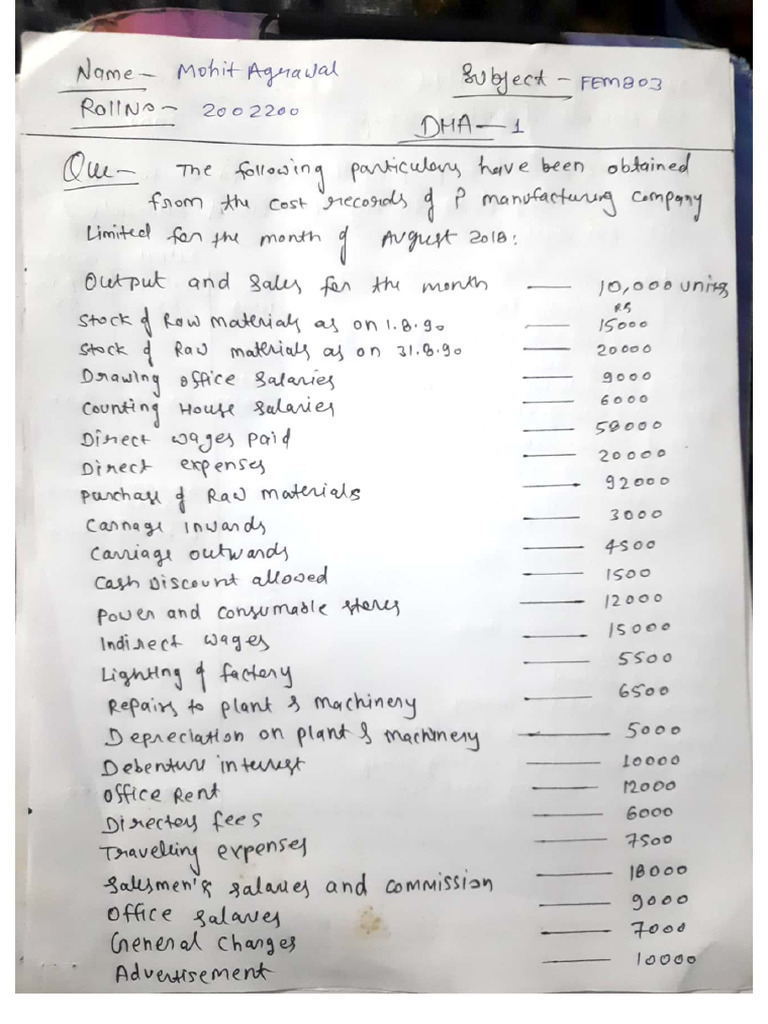 Name - Mohit Agrawal Subject - FEM803
Roll No - 2002200
DHA - 1
Que - The following particulars have been obtained
from the cost records of P manufacturing company
Limited for the month of August 2018:
Output and sales for the month — 10,000 units
RS
Stock of Raw materials as on 1.8.90 — 15000
Stock of Raw materials as on 31.8.90 — 20000
Drawing office salaries — 9000
Counting House salaries — 6000
Direct wages paid — 58000
Direct expenses — 20000
purchase of Raw materials — 92000
Carriage Inwards — 3000
Carriage outwards — 4500
Cash Discount allowed — 1500
Power and consumable stores — 12000
Indirect wages — 15000
Lighting of factory — 5500
Repairs to plant & machinery — 6500
Depreciation on plant & machinery — 5000
Debenture interest — 10000
Office Rent — 12000
Directors fees — 6000
Travelling expenses — 7500
Salesmen's salaries and commission — 18000
Office salaries — 9000
General Charges — 7000
Advertisement — 10000